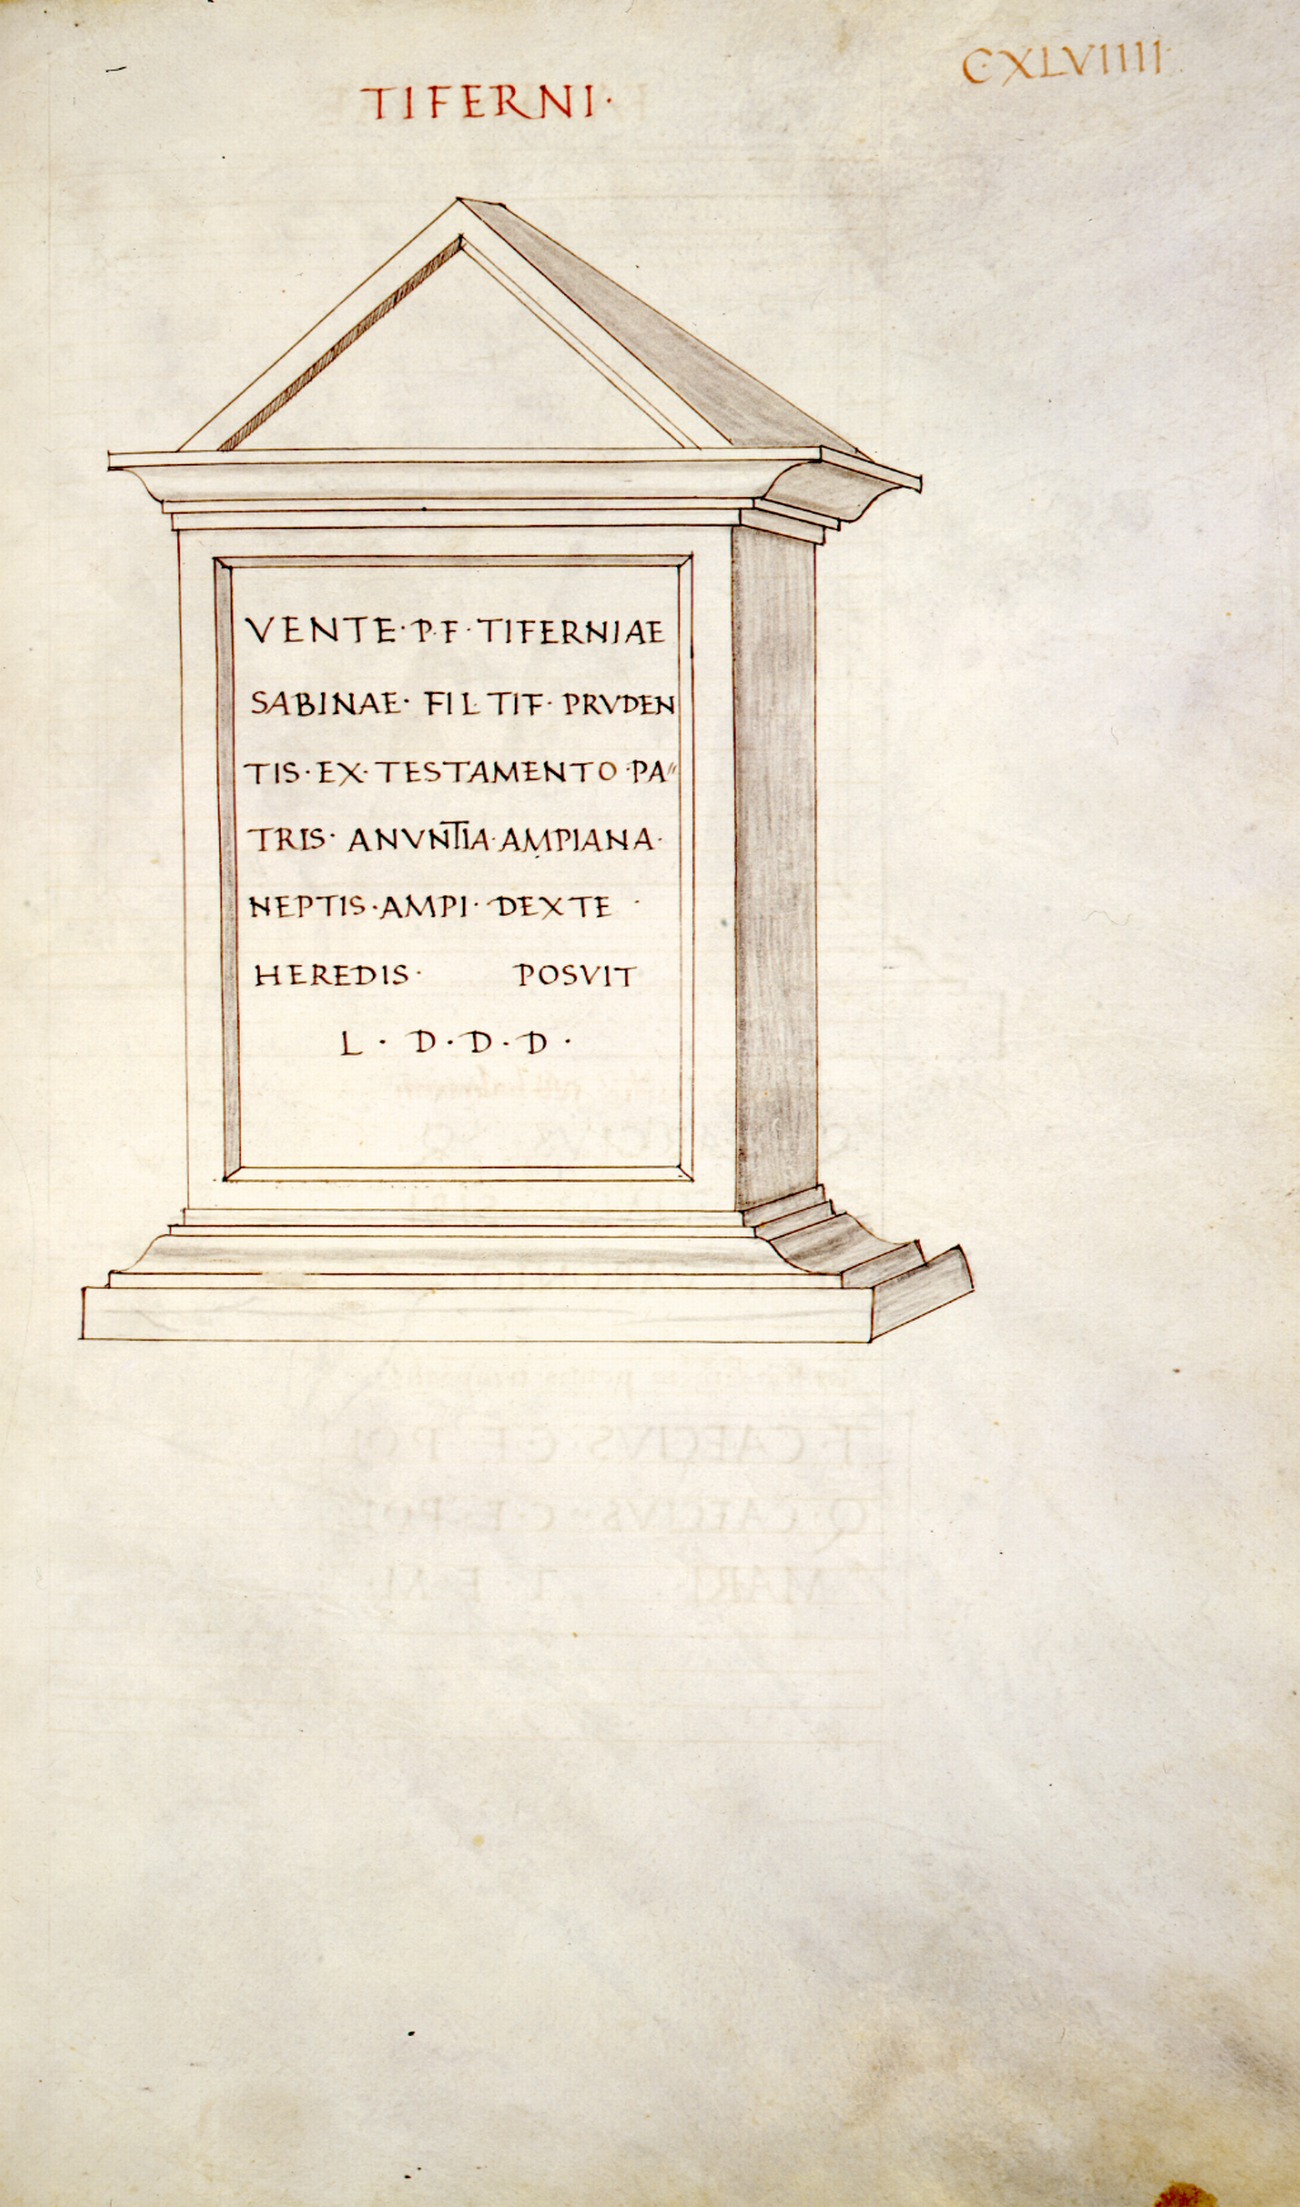 CXLVIIII·
TIFERNI·
VENTE·P·F·TIFERNIAE
SABINAE· FIL TIF· PRVDEN
TIS·EX·TESTAMENTO·PA"
TRIS· ANVNTIA·AMPIANA·
NEPTIS·AMPI· DEXTE ·
HEREDIS· POSVIT
L · D·D·D·